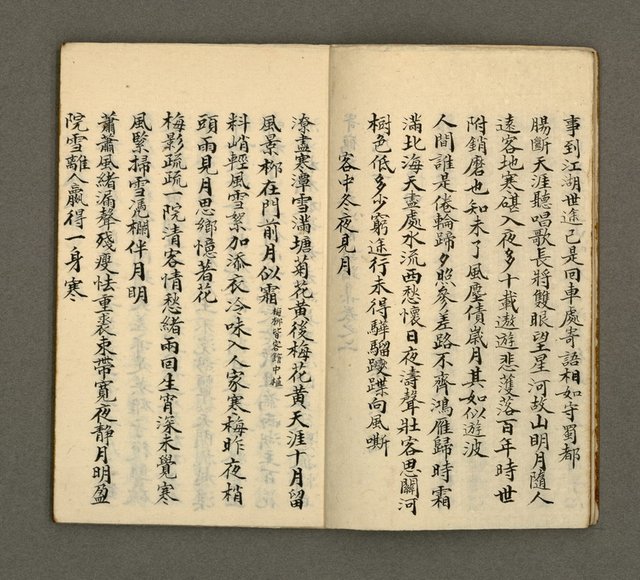 事到江湖世途已是回車處寄語相如守蜀都
腸斷天涯聽唱歌長將雙眼望星河故山明月隨人
遠客地寒碪入夜多十載遨遊悲濩落百年時世
附銷磨也知未了風塵債歲月其如似逝波
人間誰是倦輪蹄夕照參差路不齊鴻雁歸時霜
滿北海天盡處水流西愁懷日夜濤聲壯客思關河
樹色低多少窮途行未得驊騮躞蹀向風嘶
客中冬夜見月
潦盡寒潭雪滿塘菊花黃後梅花黃天涯十月留
風景柳在門前月似霜
料峭輕風雪絮加添衣冷味入人家寒梅昨夜梢
頭雨見月思鄉憶著花
梅影疏疏一院清客情愁緒兩回生宵深未覺寒
風緊掃雪憑欄伴月明
蕭蕭風緒漏聲殘瘦怯重裘束帶寬夜靜月明盈
院雪離人贏得一身寒